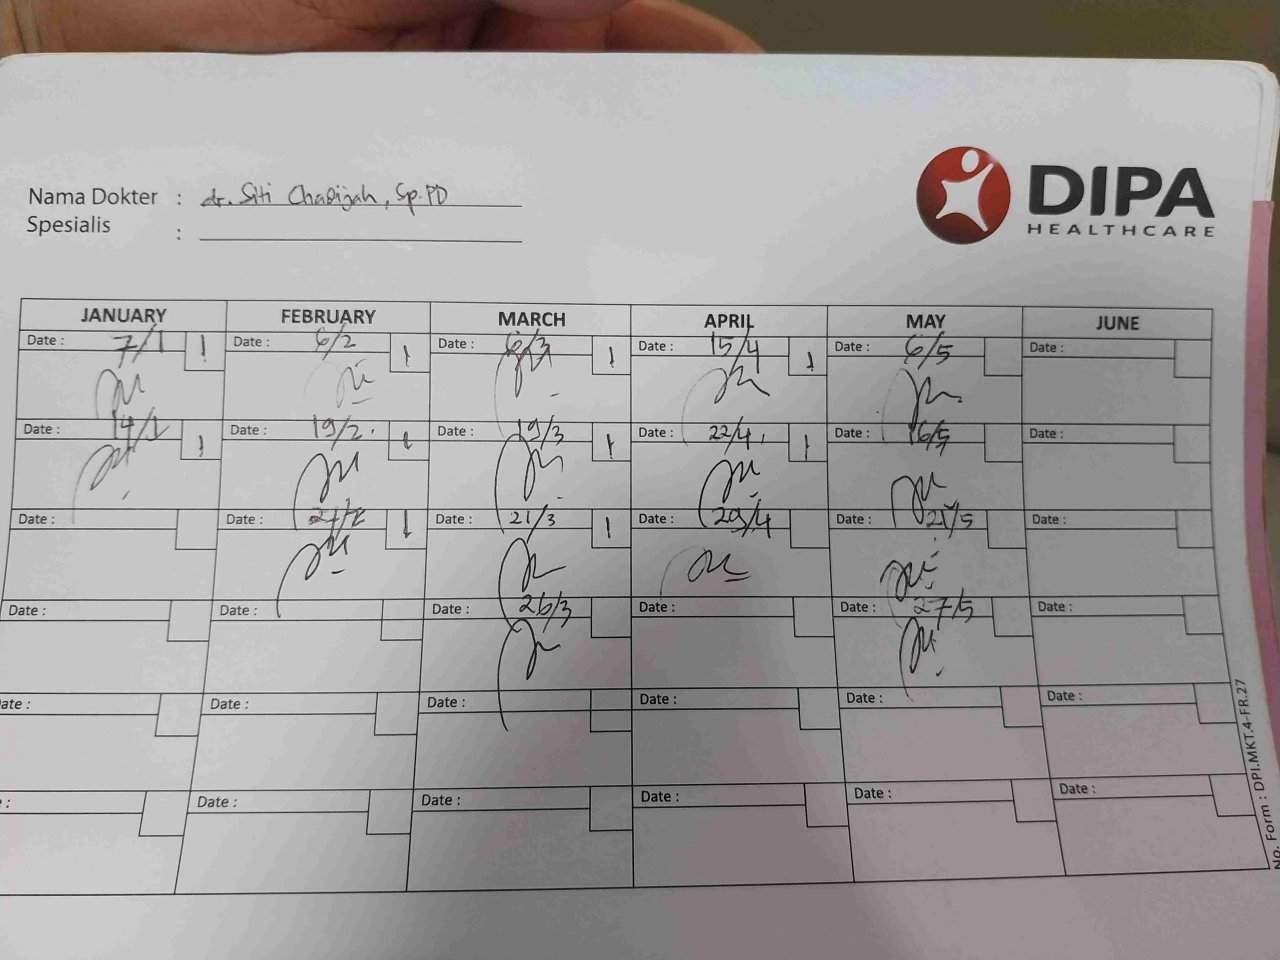 DIPA
HEALTHCARE
Nama Dokter : dr. Siti Chadijah, Sp.PD
Spesialis :
JANUARY FEBRUARY MARCH APRIL MAY JUNE
Date : 7/1 1 Date : 6/2 1 Date : 6/3 1 Date : 15/4 1 Date : 6/5 Date :
Date : 14/1 1 Date : 19/2 1 Date : 19/3 1 Date : 22/4 1 Date : 16/5 Date :
Date : Date : 1 Date : 21/3 1 Date : 29/4 Date : 21/5 Date :
Date : Date : Date : 26/3 Date : Date : 27/5 Date :
ate : Date : Date : Date : Date : Date :
: Date : Date : Date : Date : Date :
No. Form : DPI.MKT.4-FR.27